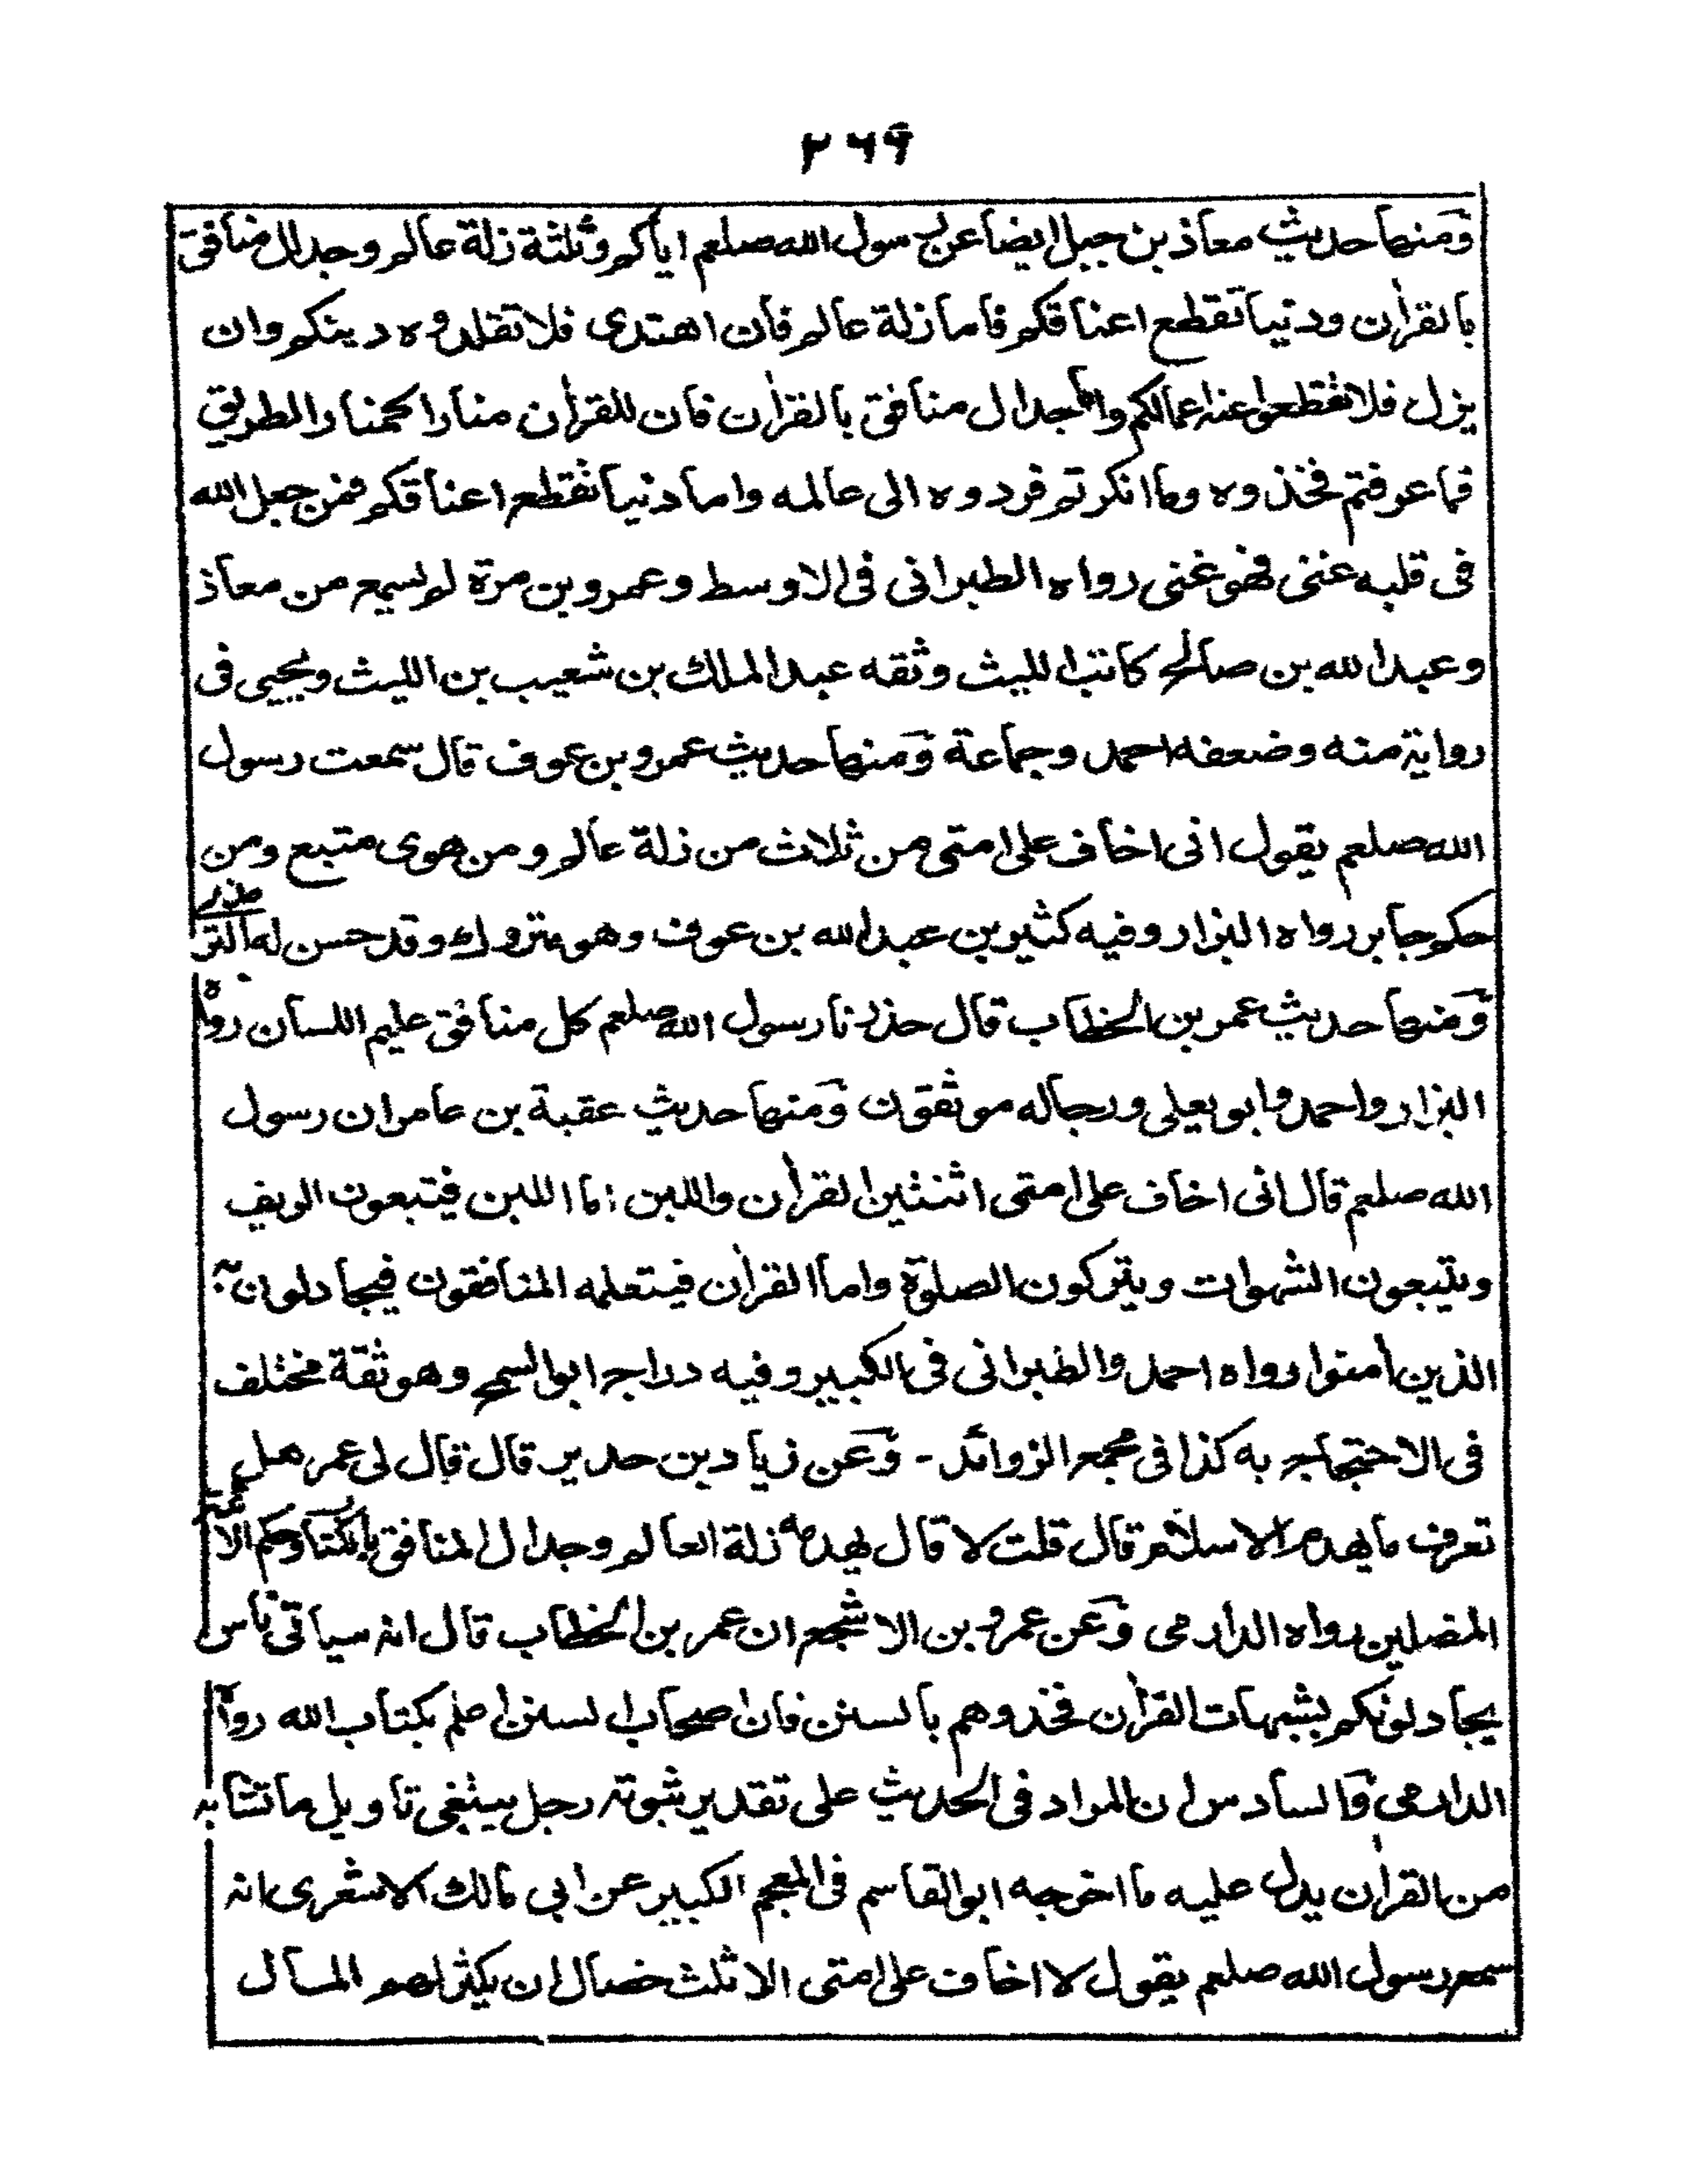 ٢٦٩
ومنها حديث معاذ بن جبل ايضا عن رسول الله صلعم اياكم وثلثة زلة عالم وجدال منافق
بالقرأن ودنيا تقطع اعناقكم فاما زلة عالم فان اهتدى فلا تقلدوه دينكم وان
يزل فلا تقطعوا عنه اعمالكم واما جدال منافق بالقرأن فان للقرأن منارا كمنار الطريق
فما عرفتم فخذوه وما انكرتم فردوه الى عالمه واما دنيا تقطع اعناقكم فمن جعل الله
فى قلبه غنى فهو غنى رواه الطبرانى فى الاوسط وعمرو بن مرة لم يسمع من معاذ
وعبد الله بن صالح كاتب الليث وثقه عبد الملك بن شعيب بن الليث ويحيى فى
رواية منه وضعفه احمد وجماعة ومنها حديث عمرو بن عوف قال سمعت رسول
الله صلعم يقول انى اخاف على امتى من ثلاث من زلة عالم ومن هوى متبع ومن
حكم جابر رواه البزار وفيه كثير بن عبد الله بن عوف وهو متروك وقد حسن له الترمذى
ومنها حديث عمر بن الخطاب قال حذرنا رسول الله صلعم كل منافق عليم اللسان رواه
البزار واحمد وابو يعلى ورجاله موثقون ومنها حديث عقبة بن عامر ان رسول
الله صلعم قال انى اخاف على امتى اثنتين القرأن واللبن اما اللبن فيتبعون الريف
ويتبعون الشهوات ويتركون الصلوة واما القرأن فيتعلمه المنافقون فيجادلون به
الذين أمنوا رواه احمد والطبرانى فى الكبير وفيه دراج ابو السمح وهو ثقة مختلف
فى الاحتجاج به كذا فى مجمع الزوائد - وعن زياد بن حدير قال قال لى عمر هل
تعرف ما يهدم الاسلام قال قلت لا قال يهدمه زلة العالم وجدال المنافق بالكتاب وحكم الائمة
المضلين رواه الدارمى وعن عمرو بن الاشجع ان عمر بن الخطاب قال انه سياتى ناس
يجادلونكم بشبهات القرأن فخذوهم بالسنن فان اصحاب السنن اعلم بكتاب الله رواه
الدارمى والسادس ان المراد فى الحديث على تقدير ثبوته رجل يبتغى تاويل ما تشابه
من القرأن يدل عليه ما اخرجه ابو القاسم فى المعجم الكبير عن ابى مالك الاشعرى انه
سمع رسول الله صلعم يقول لا اخاف على امتى الا ثلث خصال ان يكثر لهم المال